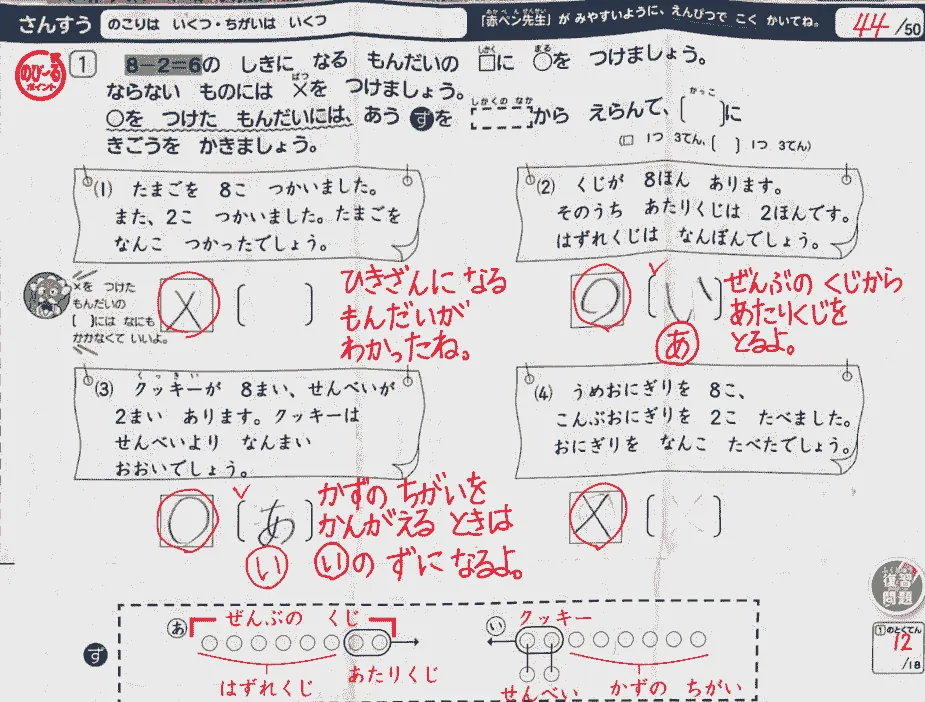 さんすう のこりは いくつ・ちがいは いくつ 「赤ペン先生」が みやすいように、えんぴつで こく かいてね。 44/50
あか ぺん せんせい
のび〜る ポイント
1 8－2＝6の しきに なる もんだいの □に ○を つけましょう。
しかく まる
ばつ
ならない ものには ×を つけましょう。
○を つけた もんだいには、あう ずを しかくのなか から えらんで、〔 〕に
かっこ
きごうを かきましょう。
(□ 1つ 3てん、〔 〕 1つ 3てん)
(1) たまごを 8こ つかいました。
また、2こ つかいました。たまごを
なんこ つかったでしょう。
×を つけた
もんだいの
〔 〕には なにも
かかなくて いいよ。
× 〔 〕
ひきざんに なる
もんだいが
わかったね。
(2) くじが 8ほん あります。
そのうち あたりくじは 2ほんです。
はずれくじは なんぼんでしょう。
○ 〔い〕
あ
ぜんぶの くじから
あたりくじを
とるよ。
(3) クッキーが 8まい、せんべいが
くっきい
2まい あります。クッキーは
せんべいより なんまい
おおいでしょう。
○ 〔あ〕
い
かずの ちがいを
かんがえる ときは
いの ずに なるよ。
(4) うめおにぎりを 8こ、
こんぶおにぎりを 2こ たべました。
おにぎりを なんこ たべたでしょう。
× 〔 〕
ず
あ ぜんぶの くじ
はずれくじ あたりくじ
い クッキー
せんべい かずの ちがい
復習
問題
1のとくてん
12
/18